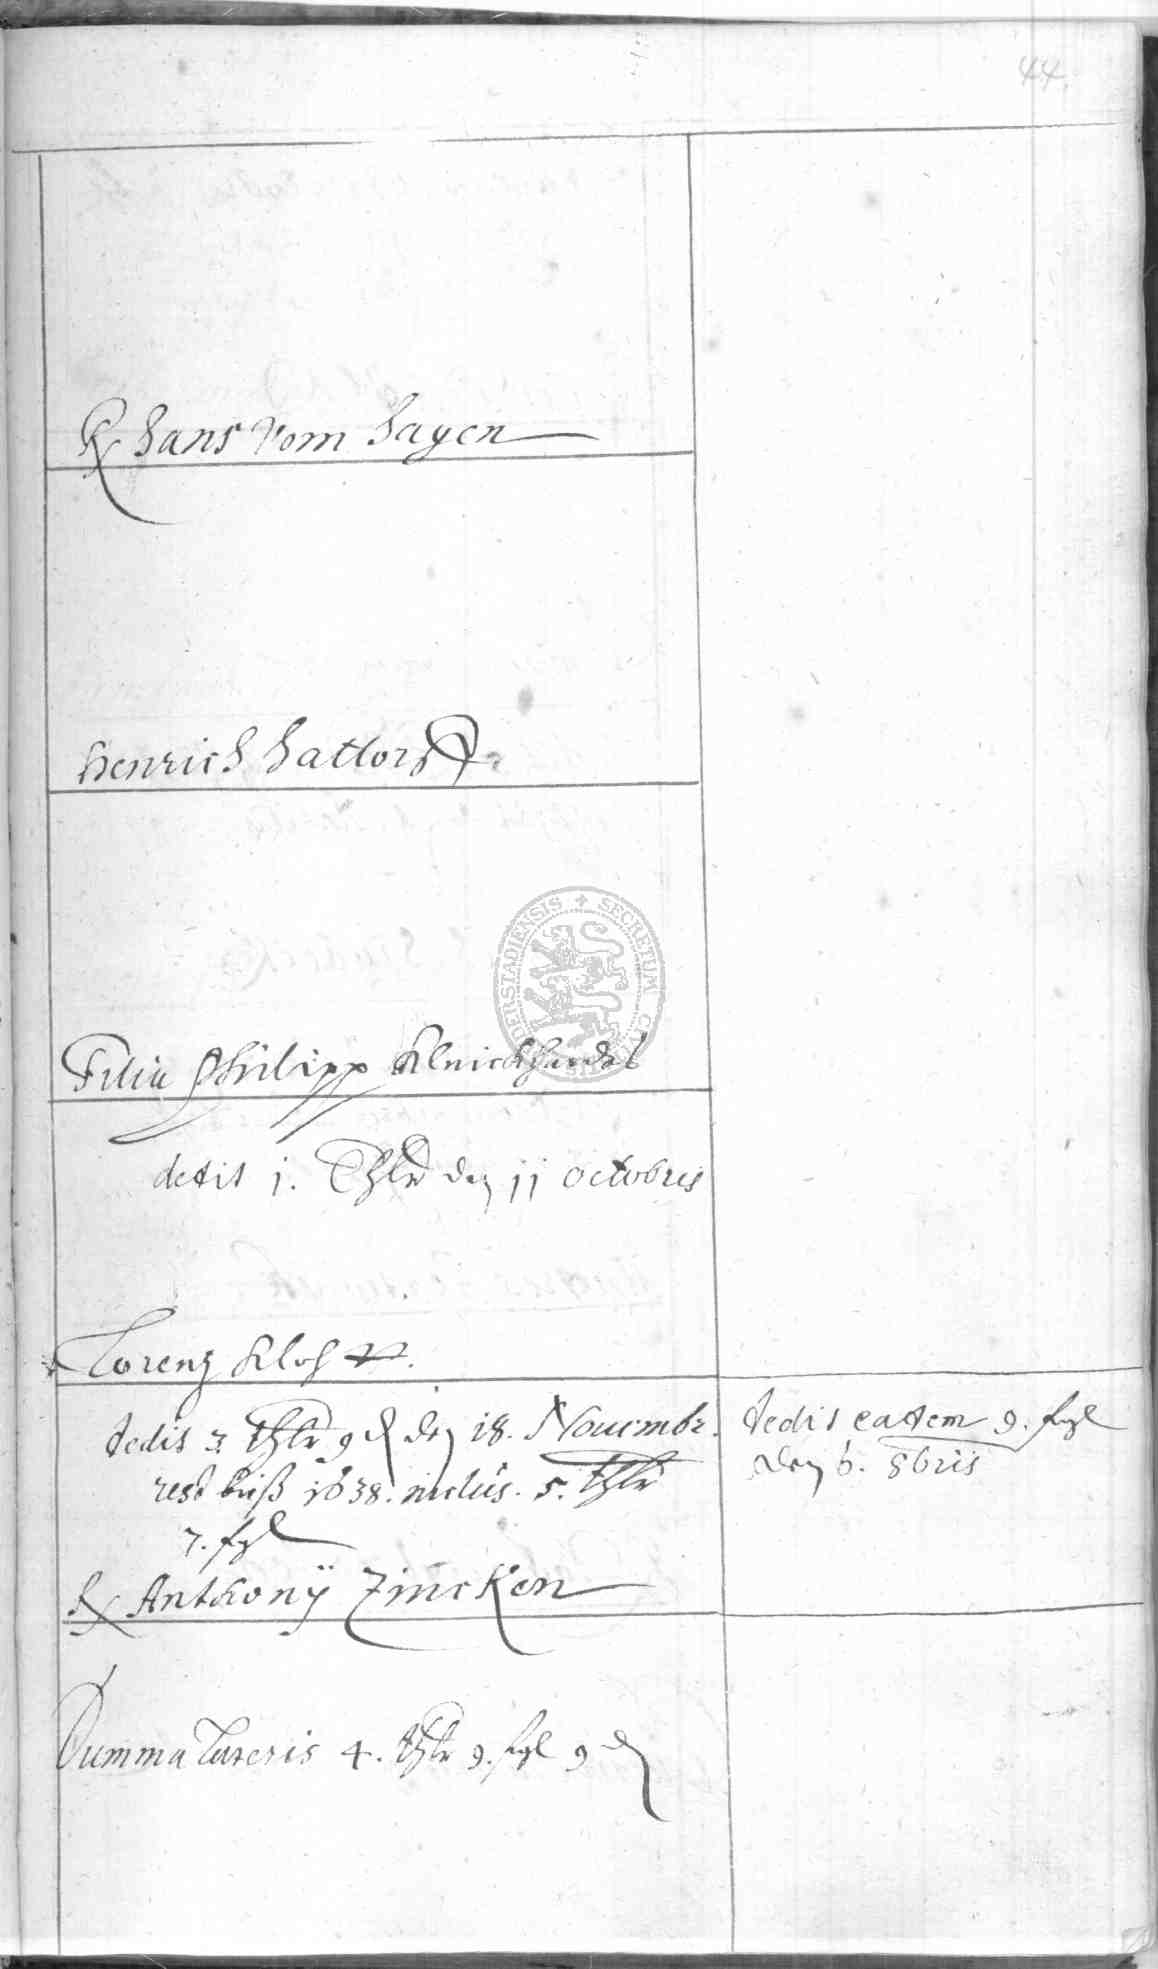 44.
R Hans Vom Hagen
Henrich Hattorff
Filia Philipp Klnickhardts
dedit 1. Thlr den 11 octobris
Lorenz Kloß
dedit 3 thlr 9 ₰ den 18. Nouembr.
rest biß 1638. inclus. 5. thlr
7. fgl
dedit eadem 9. fgl
den 6. 8bris
R Anthonÿ Zincken
Summa Lateris 4. thlr 9. fgl 9 ₰
SECRETUM CIVI DERSTADIENSIS